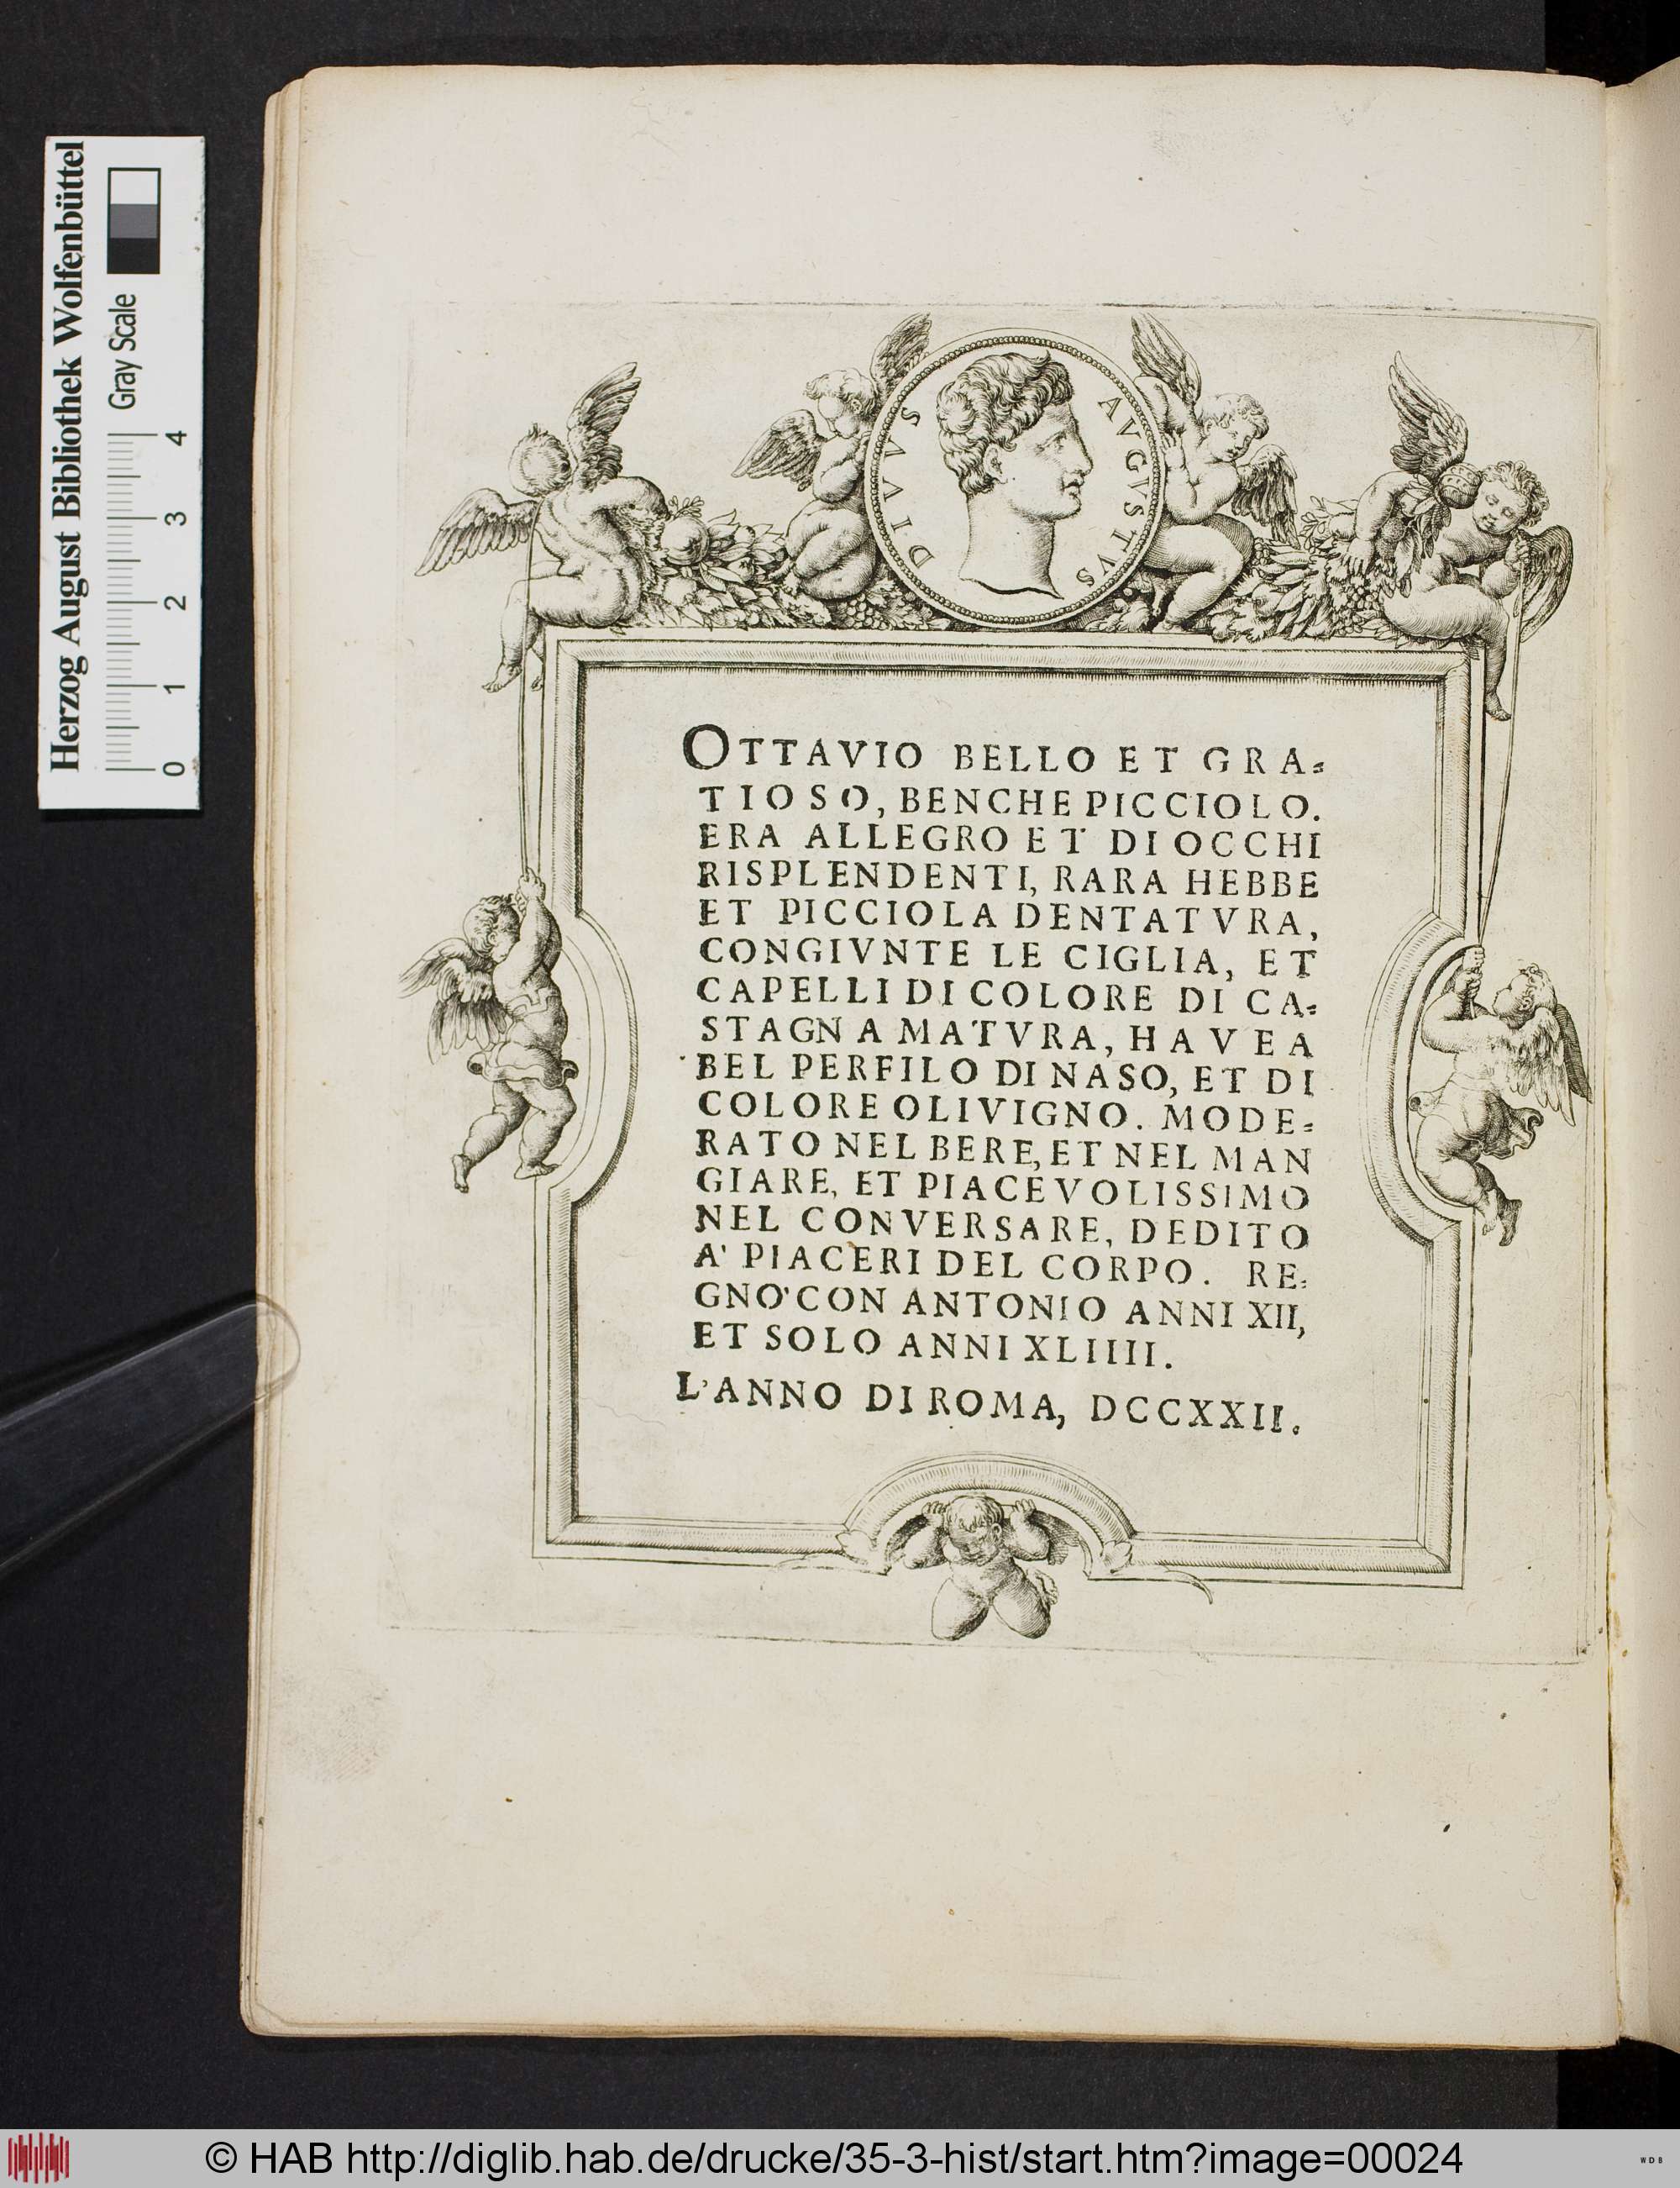 Herzog August Bibliothek Wolfenbüttel
Gray Scale
0 1 2 3 4
DIVVS AVGVSTVS
OTTAVIO BELLO ET GRA=
TIOSO, BENCHE PICCIOLO.
ERA ALLEGRO ET DI OCCHI
RISPLENDENTI, RARA HEBBE
ET PICCIOLA DENTATVRA,
CONGIVNTE LE CIGLIA, ET
CAPELLI DI COLORE DI CA=
STAGNA MATVRA, HAVEA
BEL PERFILO DI NASO, ET DI
COLORE OLIVIGNO. MODE=
RATO NEL BERE, ET NEL MAN
GIARE, ET PIACEVOLISSIMO
NEL CONVERSARE, DEDITO
A' PIACERI DEL CORPO. RE=
GNO' CON ANTONIO ANNI XII,
ET SOLO ANNI XLIIII.
L'ANNO DI ROMA, DCCXXII.
© HAB http://diglib.hab.de/drucke/35-3-hist/start.htm?image=00024
WDB